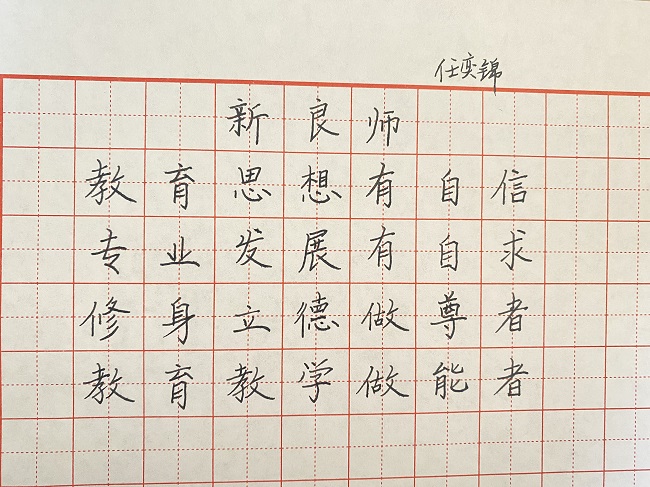 任奕锦
新良师
教育思想有自信
专业发展有自求
修身立德做尊者
教育教学做能者